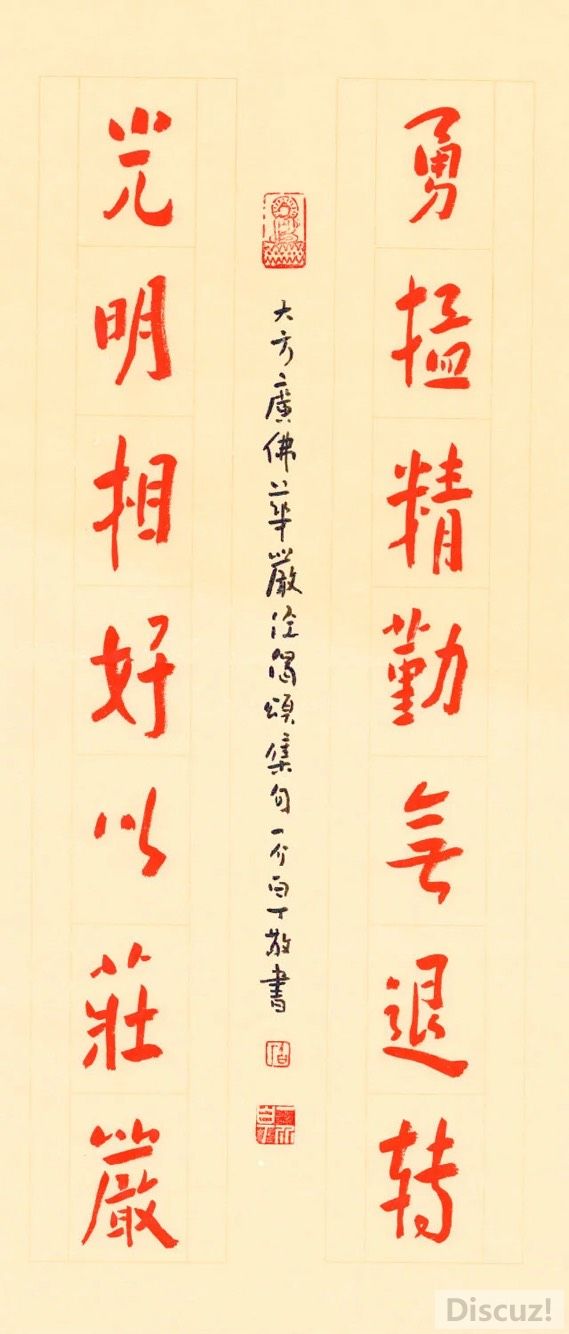 勇猛精勤無退轉
大方廣佛華嚴經偈頌集句一介白丁敬書
光明相好以莊嚴
Discuz!